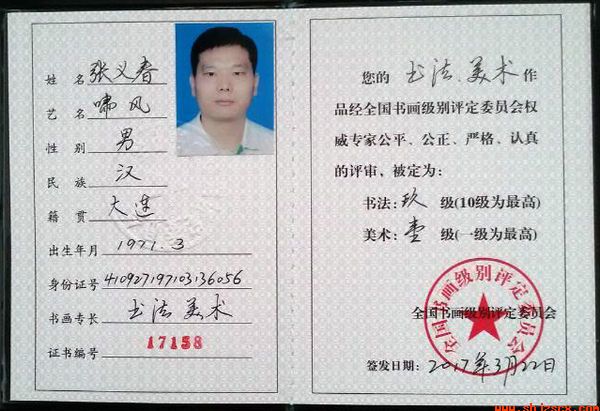 姓名 张义春
艺名 啸风
性别 男
民族 汉
籍贯 大连
出生年月 1971.3
身份证号 410927197103136056
书画专长 书法 美术
证书编号 17158
您的 书法、美术 作
品经全国书画级别评定委员会权
威专家公平、公正、严格、认真
的评审，被定为：
书法：玖 级(10级为最高)
美术：壹 级(一级为最高)
全国书画级别评定委员会
全国书画级别评定委员会
签发日期：2017年3月22日